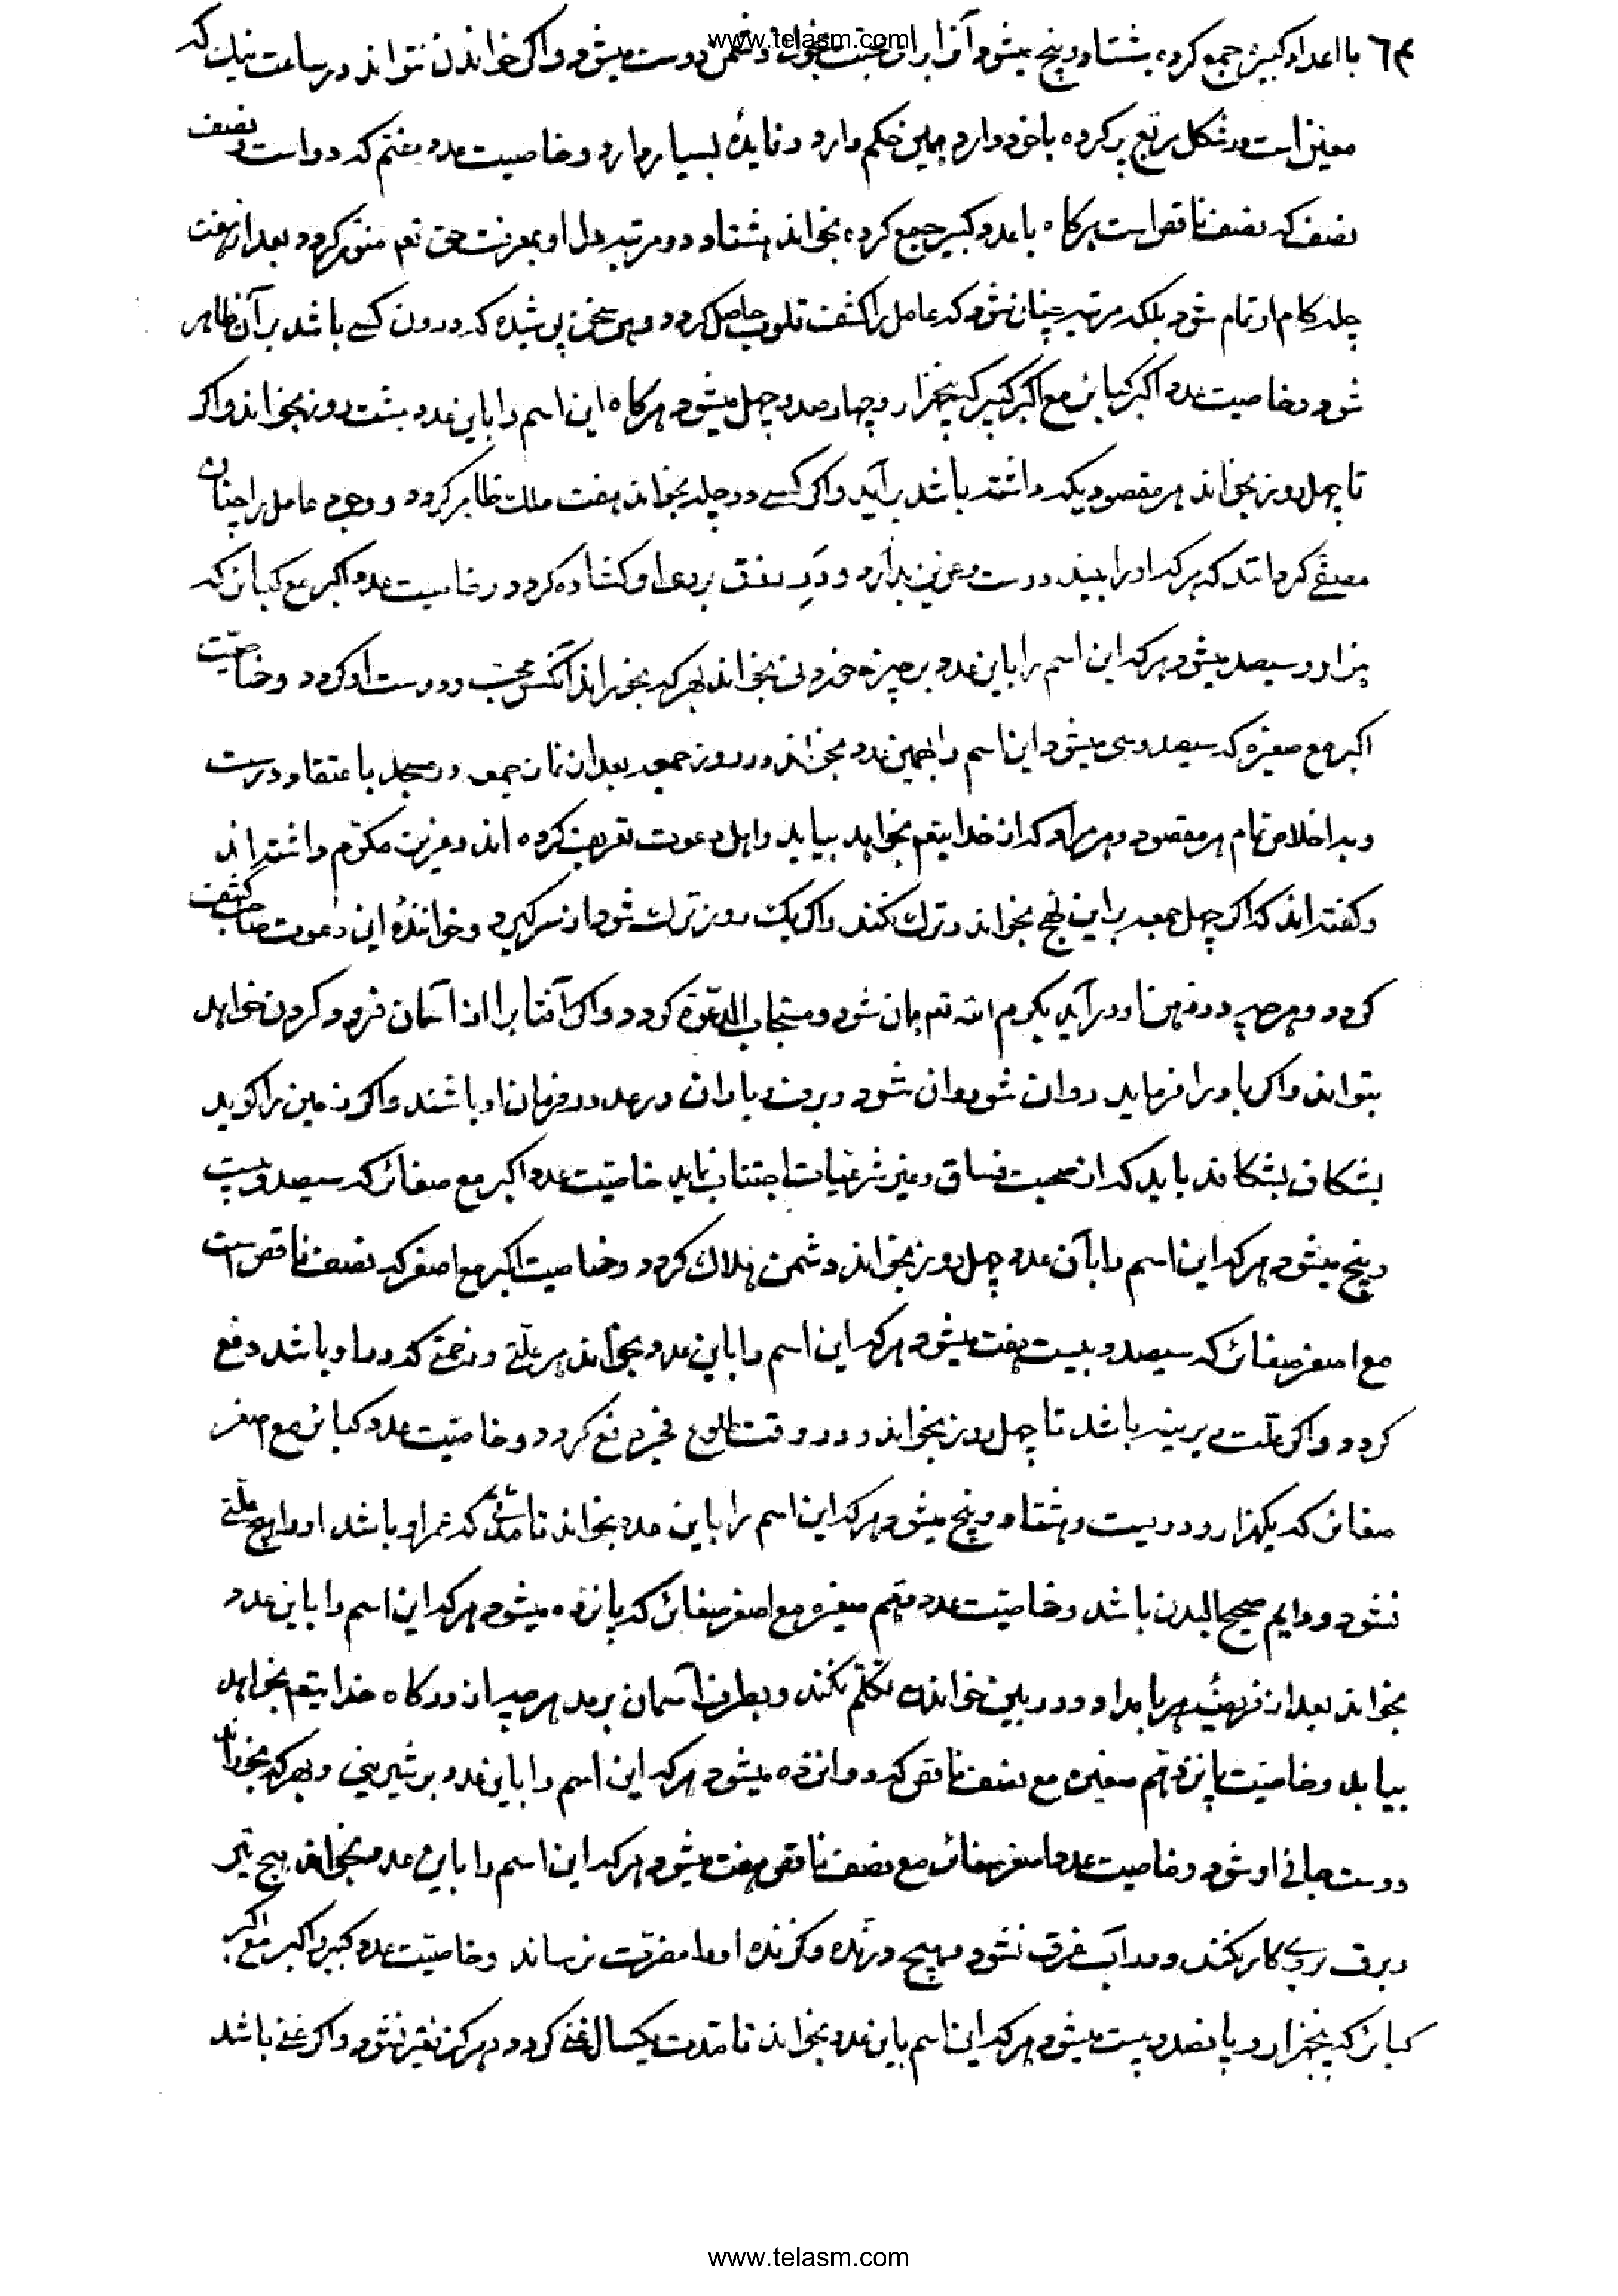 www.telasm.com
۶۴ با اعداد کبیره جمع کرده هشتاد و پنج میشود آنرا برای محبت بخواند دشمن دوست میشود و اکر خواندن نتواند در ساعت نیک که
معین است در شکل مربع پر کرده با خود دارد همین حکم دارد و فایده بسیار دارد و خاصیت عدد هفتم که دو است و نصف
نصف که نصف ناقص است هرکاه با عدد کبیر جمع کرده بخواند هشتاد و دو مرتبه دل او بمعرفت حق تع منور کردد بعد از هفت
چله کام او تمام شود بلکه مرتبه چنان شود که عامل را کشف قلوب حاصل کردد و هر سخن پوشیده که در دون کسے باشد بر آن ظاهر
شود و خاصیت عدد اکبر کبائر مع اکبر کبیر که پنجهزار و چهار صد و چهل میشود هرکاه این اسم را باین عدد هشت روز بخواند واکر
تا چهل روز بخواند هر مقصودیکه داشته باشد بر آید واکر کسے دو چله بخواند هفت ملک ظاهر کردد و وجود عامل را چنان
مصفے کردانند که هرکه او را بیند دوست و عزیز بدارد و در رزق بر وے او کشاده کردد و خاصیت عدد اکبر مع کبائر که
هزار و سیصد میشود هرکه این اسم را باین عدد بر چیزے خوردنی بخواند بهر که بخوراند آنکس محب و دوست او کردد و خاصیت
اکبر مع صغیره که سیصد و سی میشود این اسم را بهمین عدد بخواند در روز جمعه بعد از نماز جمعه در مسجد با عتقاد درست
و بد اخلاص تمام هر مقصود و هر مراد که از خدایتعم بخواهد بیابد و اهل دعوت تعریف کرده اند و عزیز مکرّم داشته اند
و کفته اند که اکر چهل جمعه براین نهج بخواند و ترک نکند واکر یک روز ترک شود از سر کیرد و خوانندهٔ این دعوت صاحب کشف
کردد و هر چه در ذهن او در آید بکرم الله تعم همان شود و مستجاب الدعوة کردد واکر آفتاب را از آسمان فرود کردن خواهد
بتواند واکر باد را فرماید روان شو روان شود و برف و باران و رعد در فرمان او باشند واکر زمین را کوید
بشکاف بشکافد باید که از صحبت فساق و غیر شرعیات اجتناب نماید خاصیت عدد اکبر مع صغائر که سیصد و بیست
و پنج میشود هرکه این اسم را بآن عدد چهل روز بخواند دشمن هلاک کردد و خاصیت اکبر مع اصغر که نصف ناقص است
مع اصغر صغائر که سیصد و بیست هفت میشود هرکه این اسم را باین عدد بخواند هر علتے و زحمتے که در او باشد دفع
کردد و اکر علّت دیرینه باشد تا چهل روز بخواند و در وقت طلوع فجر دفع کردد و خاصیت عدد کبائر مع اصغر
صغائر که یکهزار و دویست و هشتاد و پنج میشود هرکه این اسم را باین عدد بخواند تا مدتے که عمر او باشد او را هیچ علتے
نشود و دایم صحیح البدن باشد و خاصیت عدد هفتم صغیره مع اصغر صغائر که پانزده میشود هرکه این اسم را باین عدد
بخواند بعد از فریضهٔ هر بامداد و در بین خواندن تکلّم نکند و بطرف آسمان بدمد هر چه از درکاه خدایتعم بخواهد
بیابد و خاصیت پانزدهم صغیره مع نصف ناقص که دوانزده میشود هرکه این اسم را باین عدد بر شیرینی و بهر که بخوراند
دوست جانی او شود و خاصیت عدد اصغر صغائر مع نصف ناقص هفت میشود هرکه این اسم را باین عدد بخواند هیچ تیر
و برف بر وے کار نکند و در آب غرق نشود و هیچ درنده و کزنده او را مضرت نرساند و خاصیت عدد کبیر و اکبر مع اکبر
کبائر که پنجهزار و پانصد و بیست میشود هرکه این اسم باین عدد بخواند تا مدت یکسال غنے کردد و هرکز فقیر نشود و اکر غنے باشد
www.telasm.com